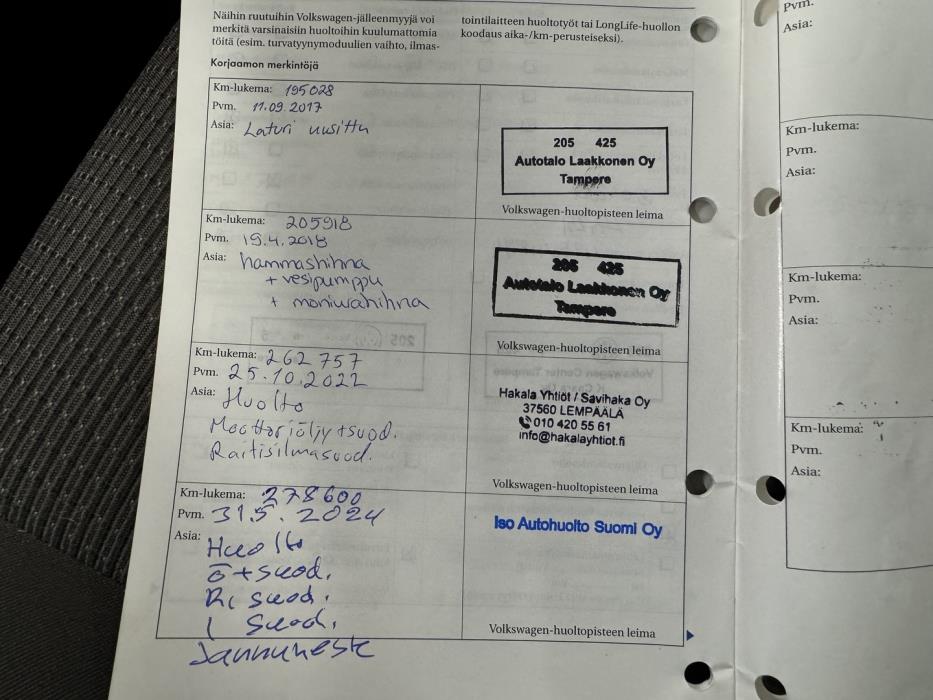 Näihin ruutuihin Volkswagen-jälleenmyyjä voi
merkitä varsinaisiin huoltoihin kuulumattomia
töitä (esim. turvatyynymoduulien vaihto, ilmas-
tointilaitteen huoltotyöt tai LongLife-huollon
koodaus aika-/km-perusteiseksi).
Korjaamon merkintöjä
Km-lukema: 195028
Pvm. 11.09.2017
Asia: Laturi uusittu
205 425
Autotalo Laakkonen Oy
Tampere
Volkswagen-huoltopisteen leima
Km-lukema: 205918
Pvm. 19.4.2018
Asia: hammashihna
+ vesipumppu
+ moniurahihna
205 425
Autotalo Laakkonen Oy
Tampere
Volkswagen-huoltopisteen leima
Km-lukema: 262 757
Pvm. 25.10.2022
Asia: Huolto
Moottoriöljy+suod.
Raitisilmasuod.
Hakala Yhtiöt / Savihaka Oy
37560 LEMPÄÄLÄ
010 420 55 61
info@hakalayhtiot.fi
Volkswagen-huoltopisteen leima
Km-lukema: 278600
Pvm. 31.5.2024
Asia: Huolto
ö+suod.
Ri suod.
I suod.
Jarruneste
Iso Autohuolto Suomi Oy
Volkswagen-huoltopisteen leima
Pvm.
Asia:
Km-lukema:
Pvm.
Asia:
Km-lukema:
Pvm.
Asia:
Km-lukema:
Pvm.
Asia: